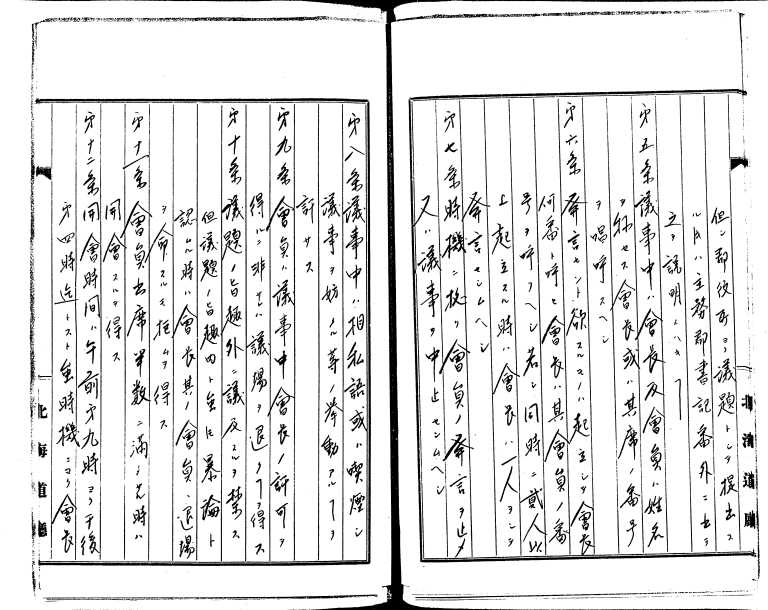 但シ郡役所ヨリ議題トシテ提出ス
ル時ハ主務郡書記番外ニ出テ
立テ説明スヘキヿ
第五条議事中ハ會長及會員ハ姓名
ヲ称セス會長或ハ其席ノ番号
ヲ唱呼スヘシ
第六条發言セント欲スルモノハ起立シテ會長
何番ト呼ヒ會長ハ其會員ノ番
号ヲ呼フヘシ若シ同時ニ貳人以
上起立スル時ハ會長ハ一人ヲシテ
發言セシムヘシ
第七条時機ニ拠リ會員ノ發言ヲ止メ
又ハ議事ヲ中止セシムヘシ
北海道廳
第八条議事中ハ相私語或ハ喫煙シ
議事ヲ妨クル等ノ挙動アルヿヲ
許サス
第九条會員ハ議事中會長ノ許可ヲ
得ルニ非レハ議場ヲ退クヿヲ得ス
第十条議題ノ旨趣外ニ議及スルヲ禁ス
但議題ノ旨趣内ト雖モ暴論ト
認ル時ハ會長其ノ會員ヘ退場
ヲ命スルモ拒ムヲ得ス
第十一条會員出席半数ニ満タル時ハ
開會スルヲ得ス
第十二条開會時間ハ午前第九時ヨリ午後
第四時迄トス但時機ニヨリ會長
北海道廳